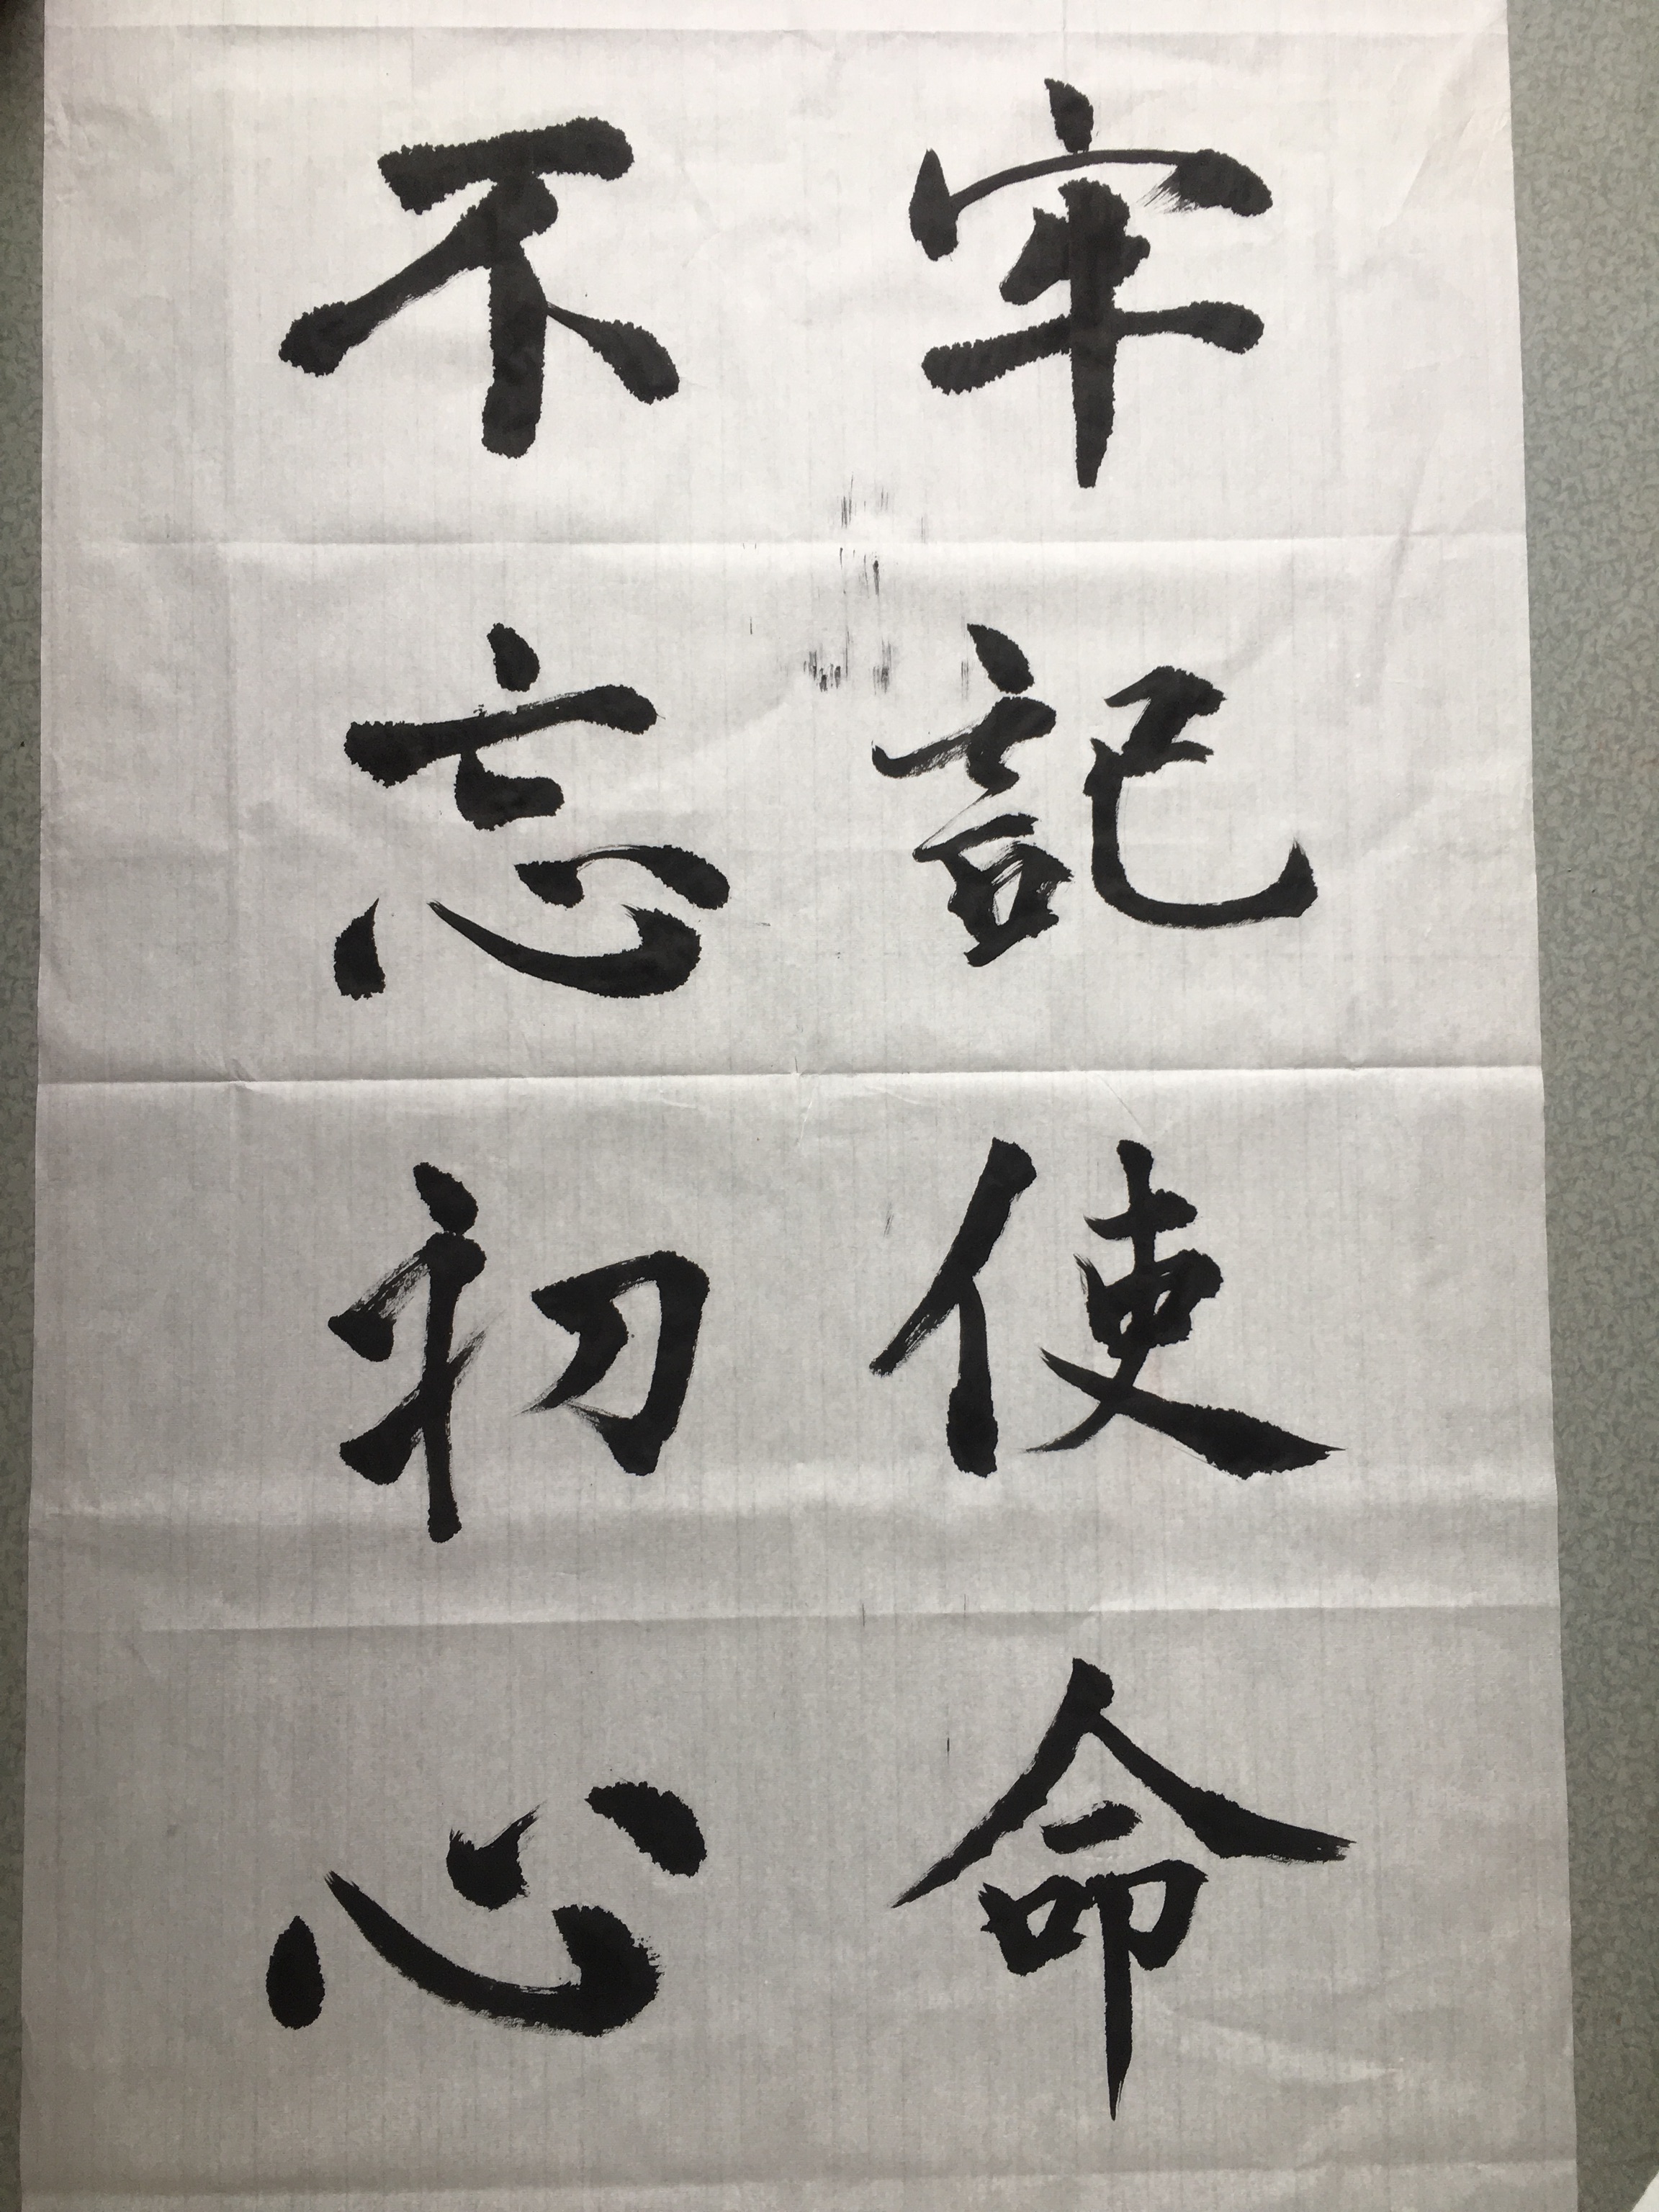 牢記使命
不忘初心